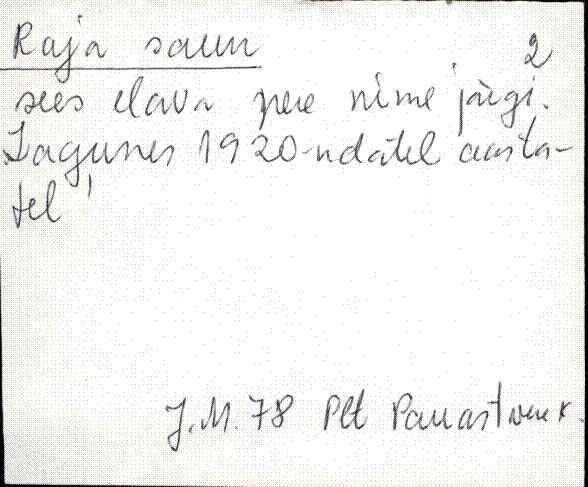 Raja saun 2
sees elava pere nime järgi.
Lagunes 1920-ndatel aasta-
tel
J.M. 78 Plt